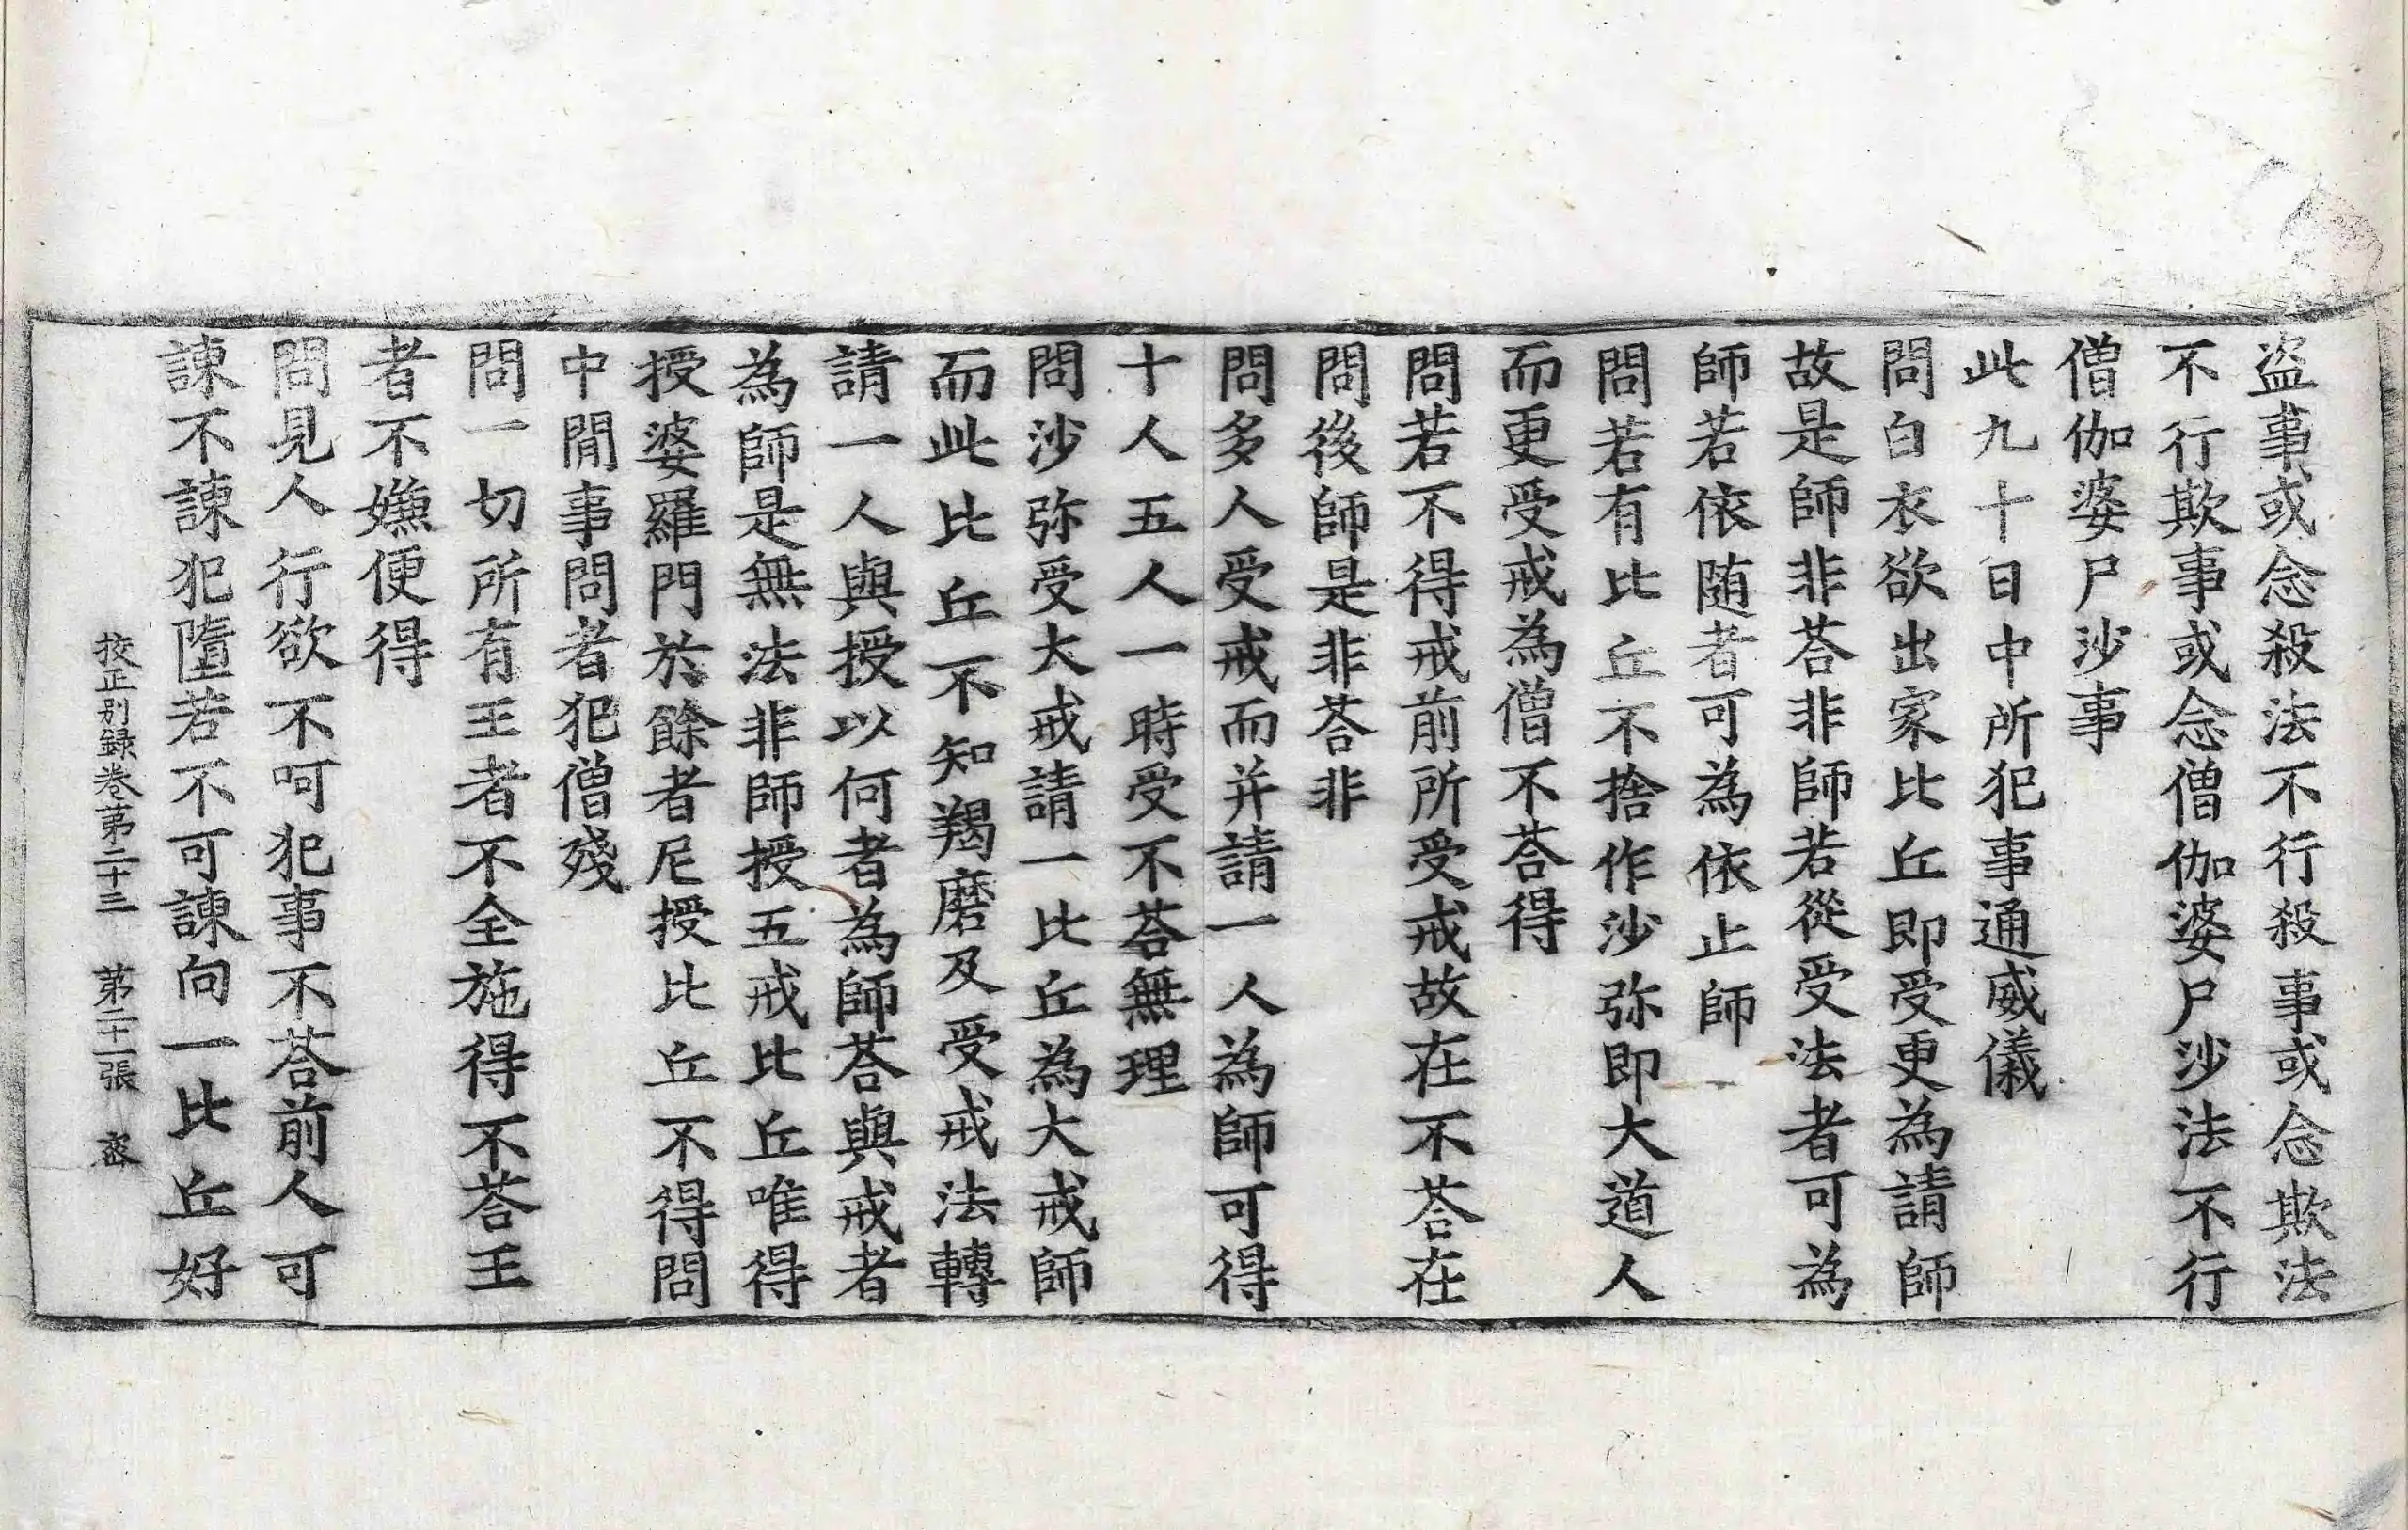 盗事或念殺法不行殺事或念欺法
不行欺事或念僧伽婆尸沙法不行
僧伽婆尸沙事
此九十日中所犯事通威儀
問白衣欲出家比丘即受更為請師
故是師非荅非師若從受法者可為
師若依随者可為依止師
問若有比丘不捨作沙弥即大道人
而更受戒為僧不荅得
問若不得戒前所受戒故在不荅在
問後師是非荅非
問多人受戒而并請一人為師可得
十人五人一時受不荅無理
問沙弥受大戒請一比丘為大戒師
而此比丘不知羯磨及受戒法轉
請一人與授以何者為師荅與戒者
為師是無法非師授五戒比丘唯得
授婆羅門於餘者尼授比丘不得問
中閒事問者犯僧殘
問一切所有王者不全施得不荅王
者不嫌便得
問見人行欲不呵犯事不荅前人可
諫不諫犯墮若不可諫向一比丘好
挍正別錄卷苐二十三 苐二十一張 宻